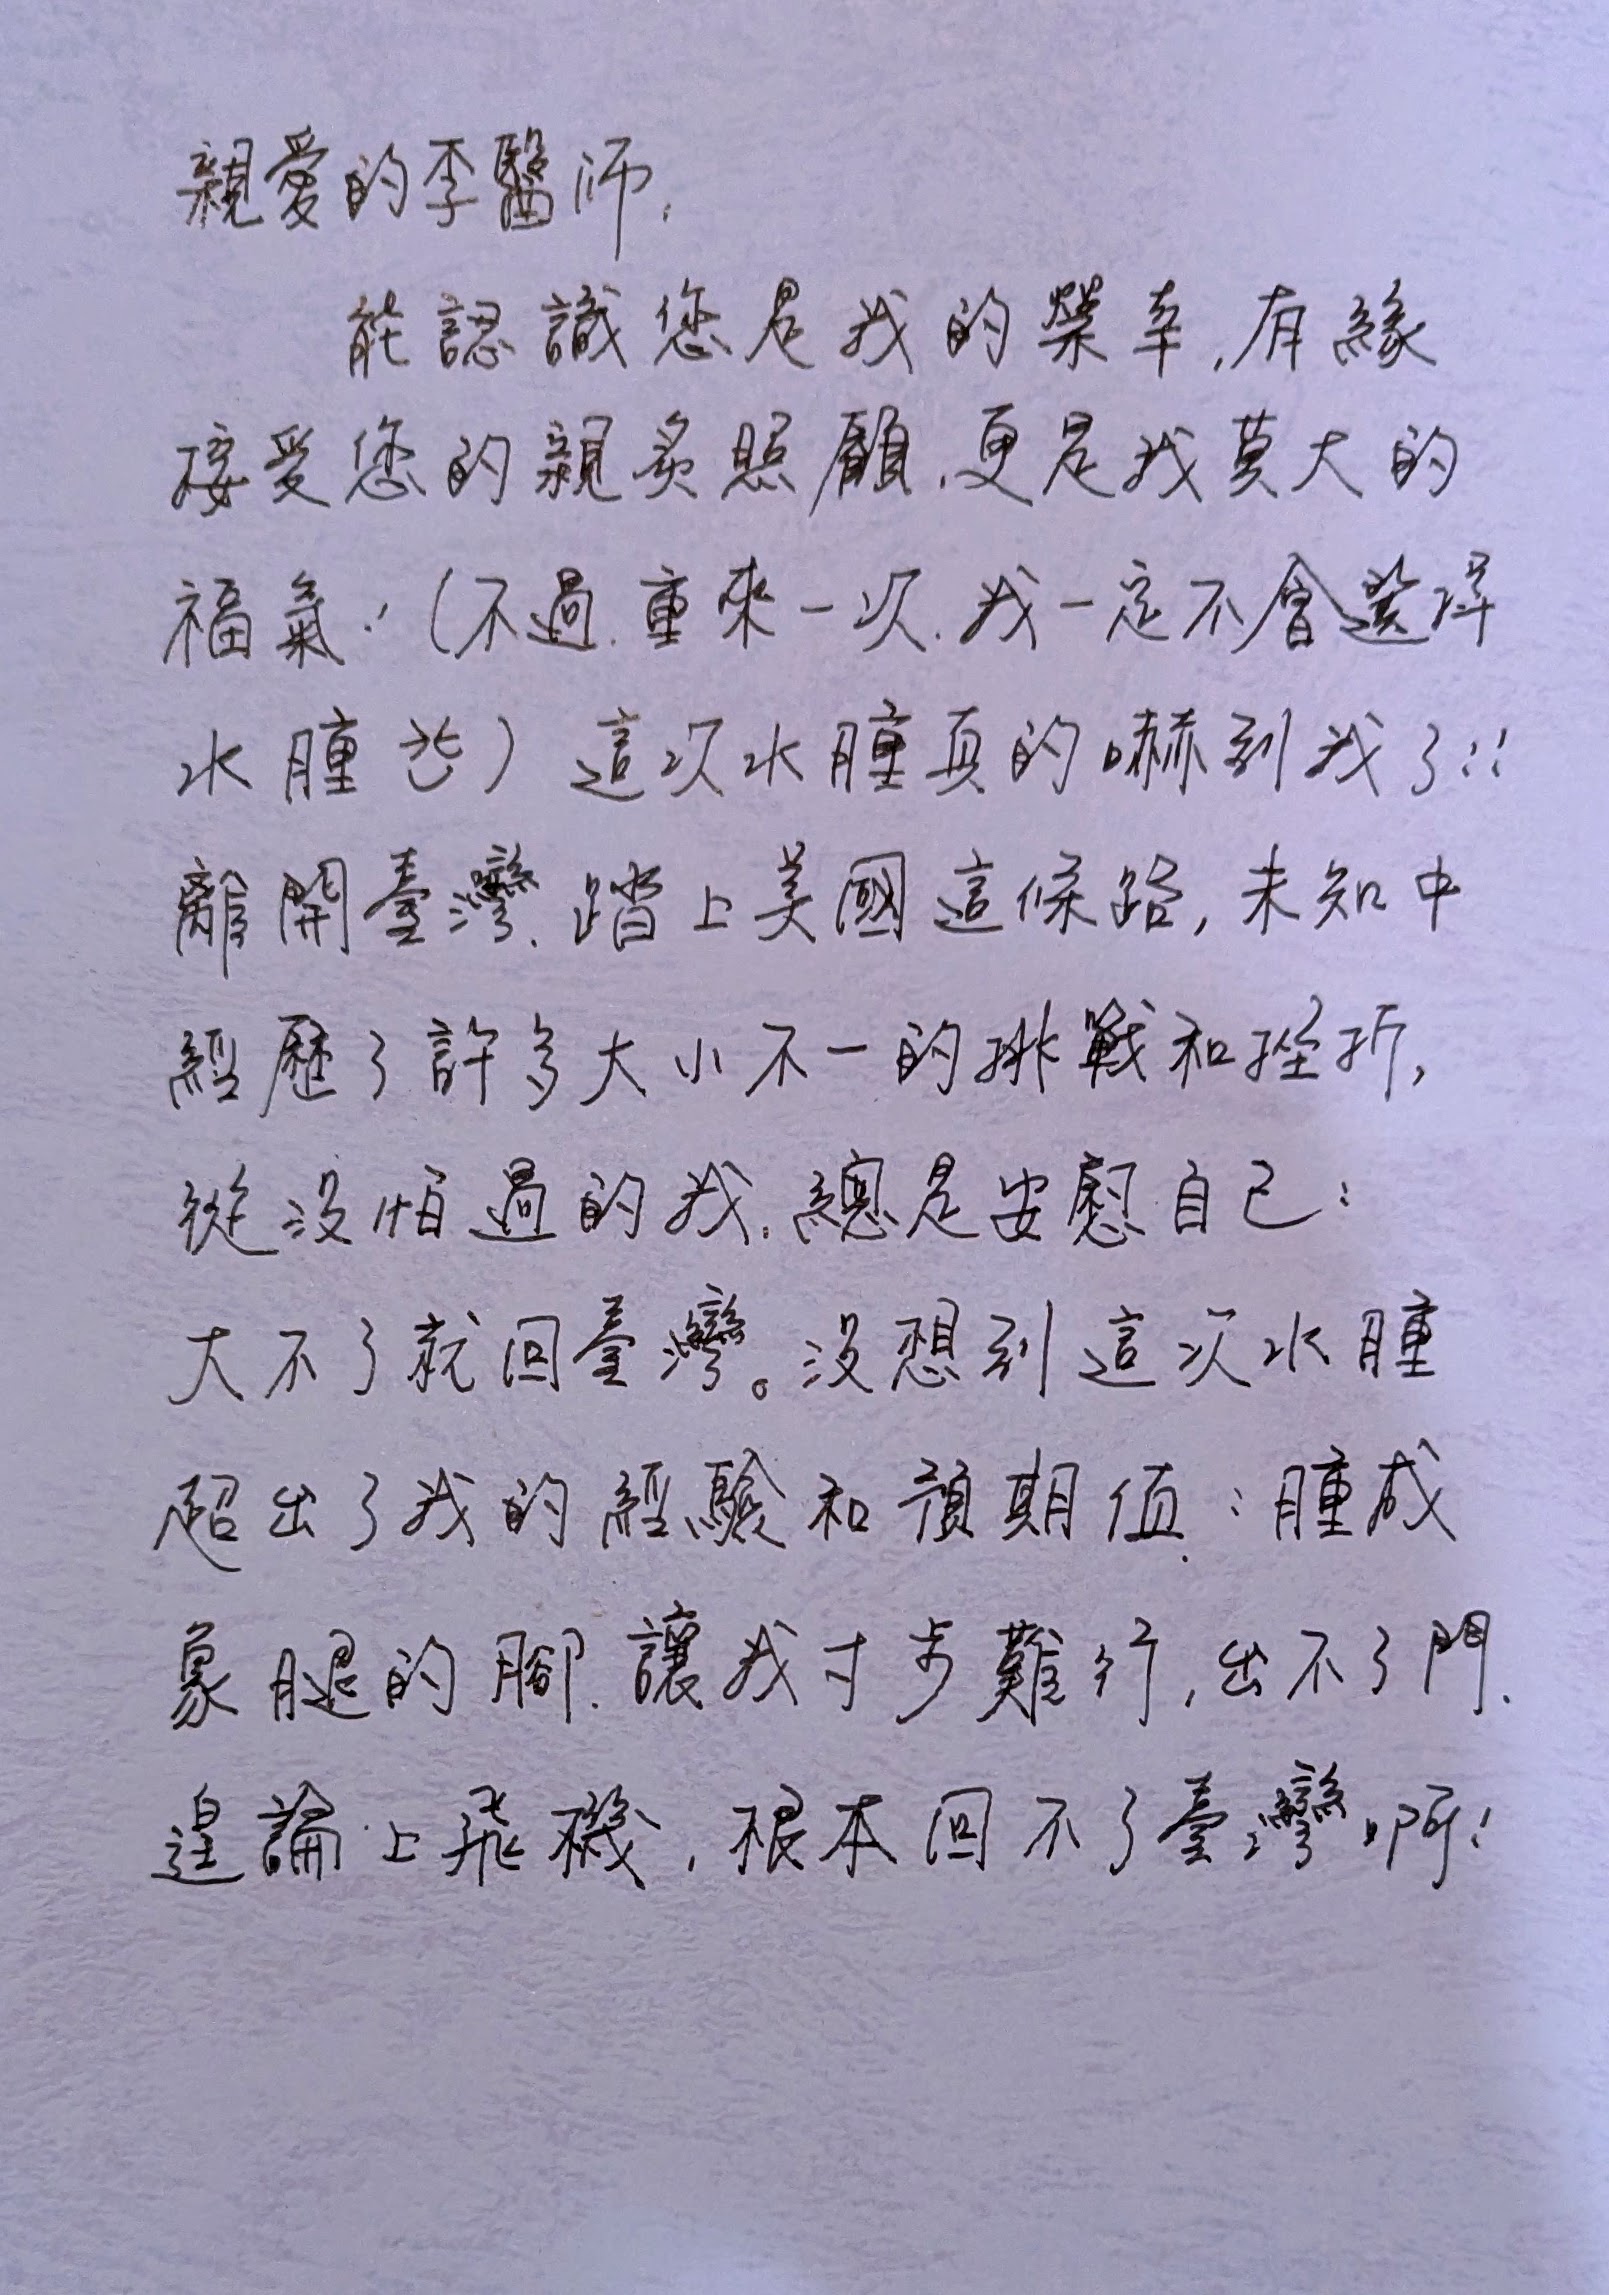 親愛的李醫師,
能認識您是我的榮幸,有緣
接受您的親炙照顧,更是我莫大的
福氣!(不過,重來一次,我一定不會選擇
水腫)這次水腫真的嚇到我了!!
離開臺灣,踏上美國這條路,未知中
經歷了許多大小不一的挑戰和挫折,
從沒怕過的我,總是安慰自己:
大不了就回臺灣。沒想到這次水腫
超出了我的經驗和預期值:腫成
象腿的腳,讓我寸步難行,出不了門,
遑論上飛機,根本回不了臺灣啊!